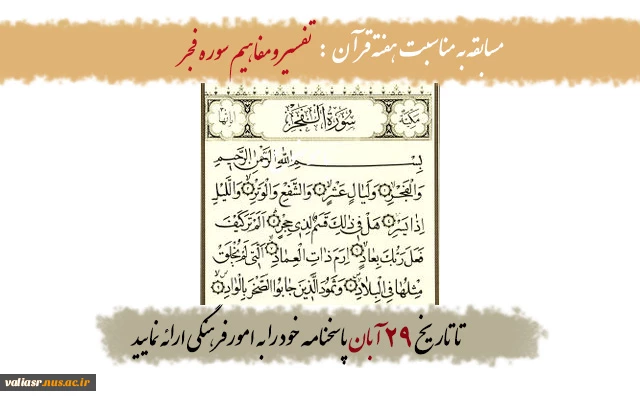 مسابقه به مناسبت هفته قرآن : تفسیر و مفاهیم سوره فجر
مكيّة
سُورَةُ الْفَجْرِ
آياتها
بِسْمِ اللهِ الرَّحْمٰنِ الرَّحِيمِ
وَالْفَجْرِ ۝ وَلَيَالٍ عَشْرٍ ۝ وَالشَّفْعِ وَالْوَتْرِ ۝ وَاللَّيْلِ
اِذَا يَسْرِ ۝ هَلْ فِي ذٰلِكَ قَسَمٌ لِذِي حِجْرٍ ۝ اَلَمْ تَرَ كَيْفَ
فَعَلَ رَبُّكَ بِعَادٍ ۝ اِرَمَ ذَاتِ الْعِمَادِ ۝ اَلَّتِي لَمْ يُخْلَقْ
مِثْلُهَا فِي الْبِلَادِ ۝ وَثَمُودَ الَّذِينَ جَابُوا الصَّخْرَ بِالْوَادِ ۝
تا تاریخ ۲۹ آبان پاسخنامه خود را به امور فرهنگی ارائه نمایید
valiasr.nus.ac.ir